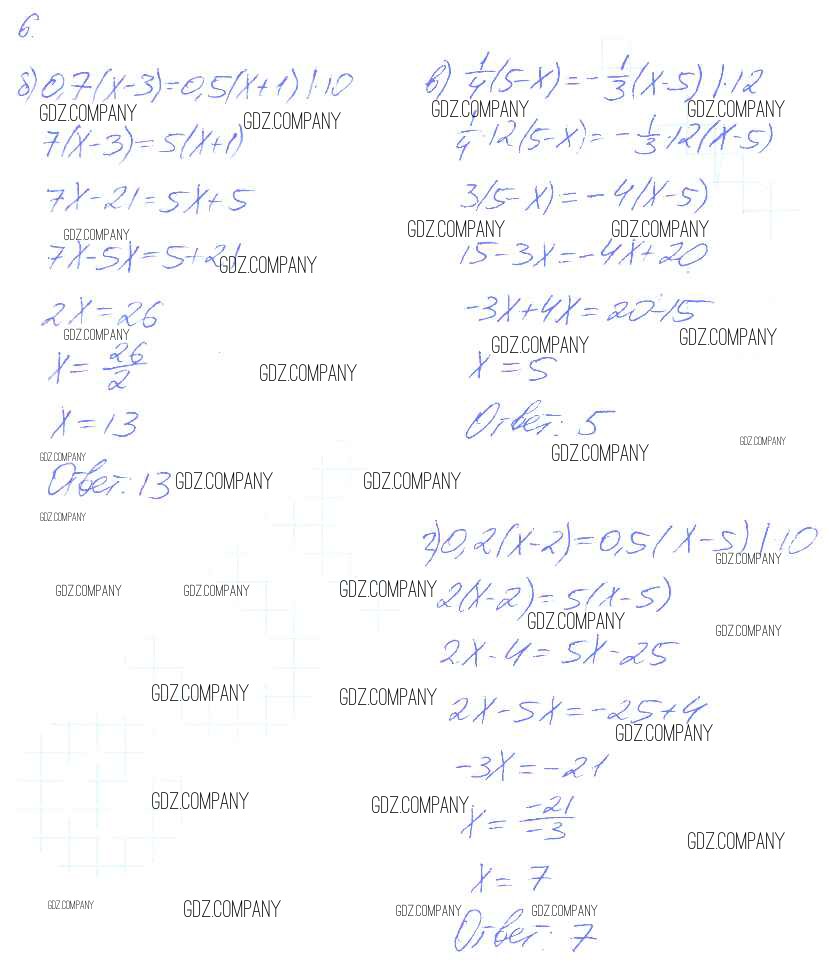 6.
б) 0,7(x-3)=0,5(x+1) |·10
GDZ.COMPANY GDZ.COMPANY
7(x-3)=5(x+1)
7x-21=5x+5
GDZ.COMPANY
7x-5x=5+21
GDZ.COMPANY
2x=26
GDZ.COMPANY
x=26/2
GDZ.COMPANY
x=13
GDZ.COMPANY
Ответ: 13
GDZ.COMPANY GDZ.COMPANY
GDZ.COMPANY
в) 1/4(5-x)=-1/3(x-5) |·12
GDZ.COMPANY GDZ.COMPANY
1/4·12(5-x)=-1/3·12(x-5)
3(5-x)=-4(x-5)
GDZ.COMPANY GDZ.COMPANY
15-3x=-4x+20
-3x+4x=20-15
GDZ.COMPANY GDZ.COMPANY
x=5
Ответ: 5
GDZ.COMPANY GDZ.COMPANY
г) 0,2(x-2)=0,5(x-5) |·10
GDZ.COMPANY
GDZ.COMPANY GDZ.COMPANY GDZ.COMPANY
2(x-2)=5(x-5)
GDZ.COMPANY GDZ.COMPANY
2x-4=5x-25
GDZ.COMPANY GDZ.COMPANY
2x-5x=-25+4
GDZ.COMPANY
-3x=-21
GDZ.COMPANY GDZ.COMPANY
x=-21/-3
GDZ.COMPANY
x=7
GDZ.COMPANY GDZ.COMPANY GDZ.COMPANY GDZ.COMPANY
Ответ: 7